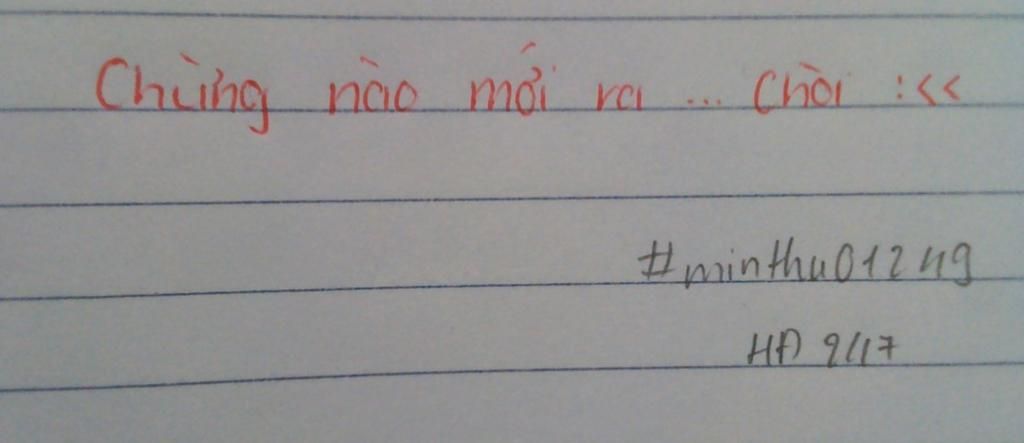 Chừng nào mới ra ... Chòi :<<
#minthu01249
HĐ 9/17